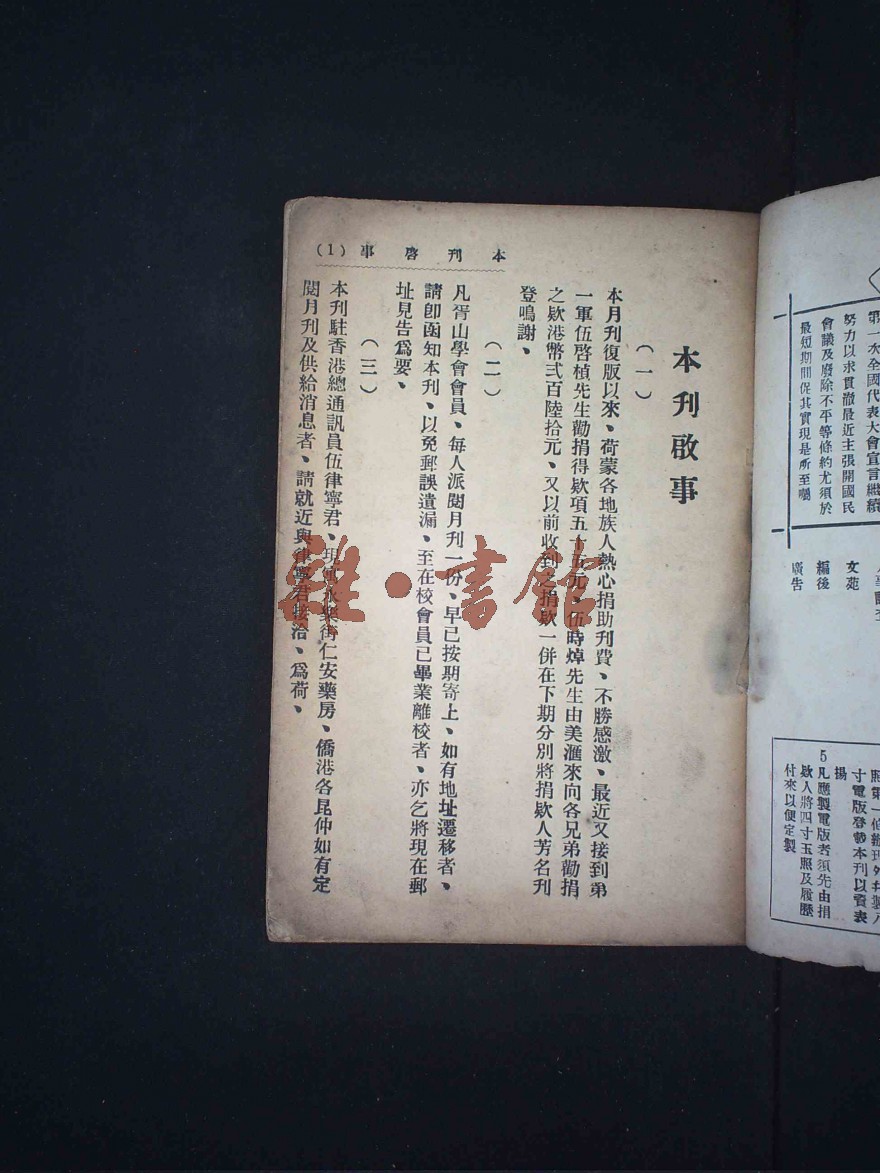 第一次全國代表大會宣言繼續
努力以求貫徹最近主張開國民
會議及廢除不平等條約尤須於
最短期間促其實現是所至囑
文苑
編後
廣告
寸電版登載本刊以資表
揚
5 凡應製電版者須先由捐
欵人將四寸玉照及履歷
付來以便定製
本刊啟事
(一)
本月刊復版以來、荷蒙各地族人熱心捐助刊費、不勝感激、最近又接到弟
一軍伍啓楨先生勸捐得欵項五十五元、伍時焯先生由美滙來向各兄弟勸捐
之欵港幣弍百陸拾元、又以前收到之捐欵一併在下期分別將捐欵人芳名刊
登鳴謝、
(二)
凡胥山學會會員、每人派閱月刊一份、早已按期寄上、如有地址遷移者、
請卽函知本刊、以免郵誤遺漏、至在校會員已畢業離校者、亦乞將現在郵
址見告爲要、
(三)
本刊駐香港總通訊員伍律寧君、現寓永樂街仁安藥房、僑港各昆仲如有定
閱月刊及供給消息者、請就近與律寧君接洽、爲荷、
本刊啓事 (1)
雜·書館